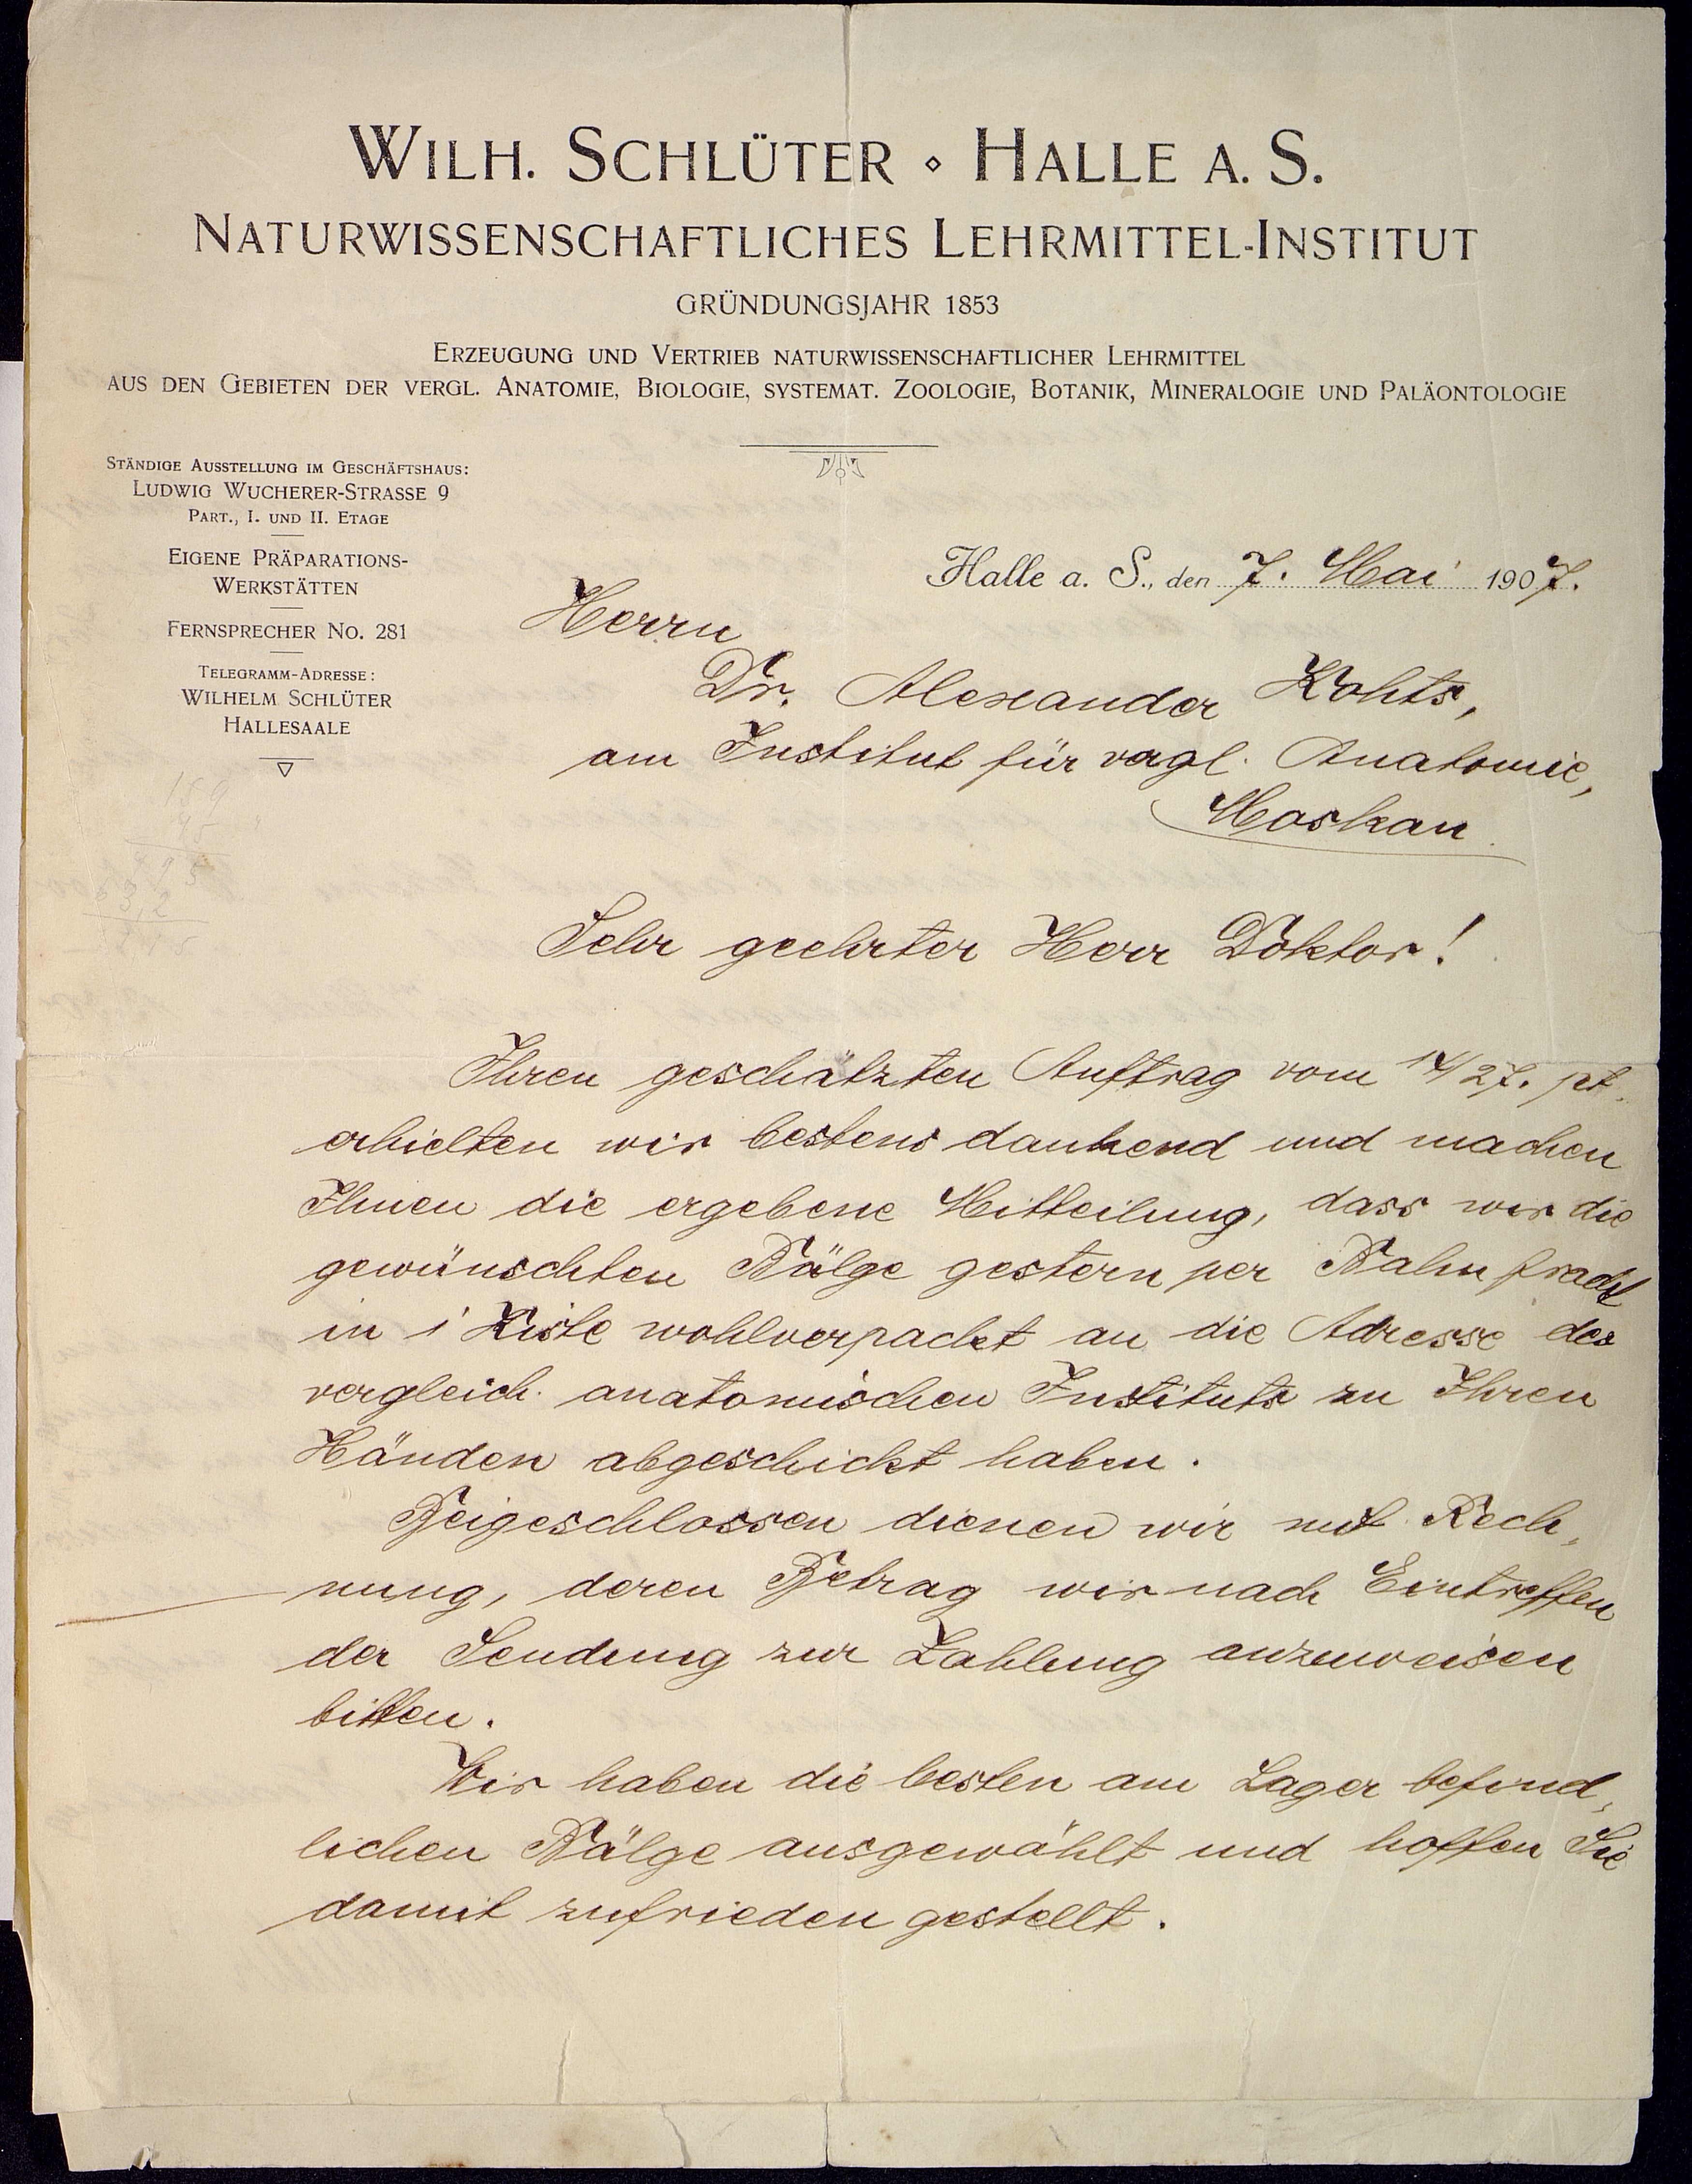 WILH. SCHLÜTER ⋄ HALLE A. S.
NATURWISSENSCHAFTLICHES LEHRMITTEL-INSTITUT
GRÜNDUNGSJAHR 1853
ERZEUGUNG UND VERTRIEB NATURWISSENSCHAFTLICHER LEHRMITTEL
AUS DEN GEBIETEN DER VERGL. ANATOMIE, BIOLOGIE, SYSTEMAT. ZOOLOGIE, BOTANIK, MINERALOGIE UND PALÄONTOLOGIE
STÄNDIGE AUSSTELLUNG IM GESCHÄFTSHAUS:
LUDWIG WUCHERER-STRASSE 9
PART., I. UND II. ETAGE
EIGENE PRÄPARATIONS-
WERKSTÄTTEN
FERNSPRECHER NO. 281
TELEGRAMM-ADRESSE:
WILHELM SCHLÜTER
HALLESAALE
Halle a. S., den 7. Mai 1907.
Herrn
Dr. Alexander Kohts,
am Institut für vergl. Anatomie,
Moskau.
Sehr geehrter Herr Doktor!
Ihren geschätzten Auftrag vom 14/27. pt.
erhielten wir bestens dankend und machen
Ihnen die ergebene Mitteilung, dass wir die
gewünschten Bälge gestern per Bahnfracht
in 1 Kiste wohlverpackt an die Adresse des
vergleich. anatomischen Instituts zu Ihren
Händen abgeschickt haben.
Beigeschlossen dienen wir mit Rech-
nung, deren Betrag wir nach Eintreffen
der Sendung zur Zahlung anzuweisen
bitten.
Wir haben die besten am Lager befind-
lichen Bälge ausgewählt und hoffen Sie
damit zufrieden gestellt.